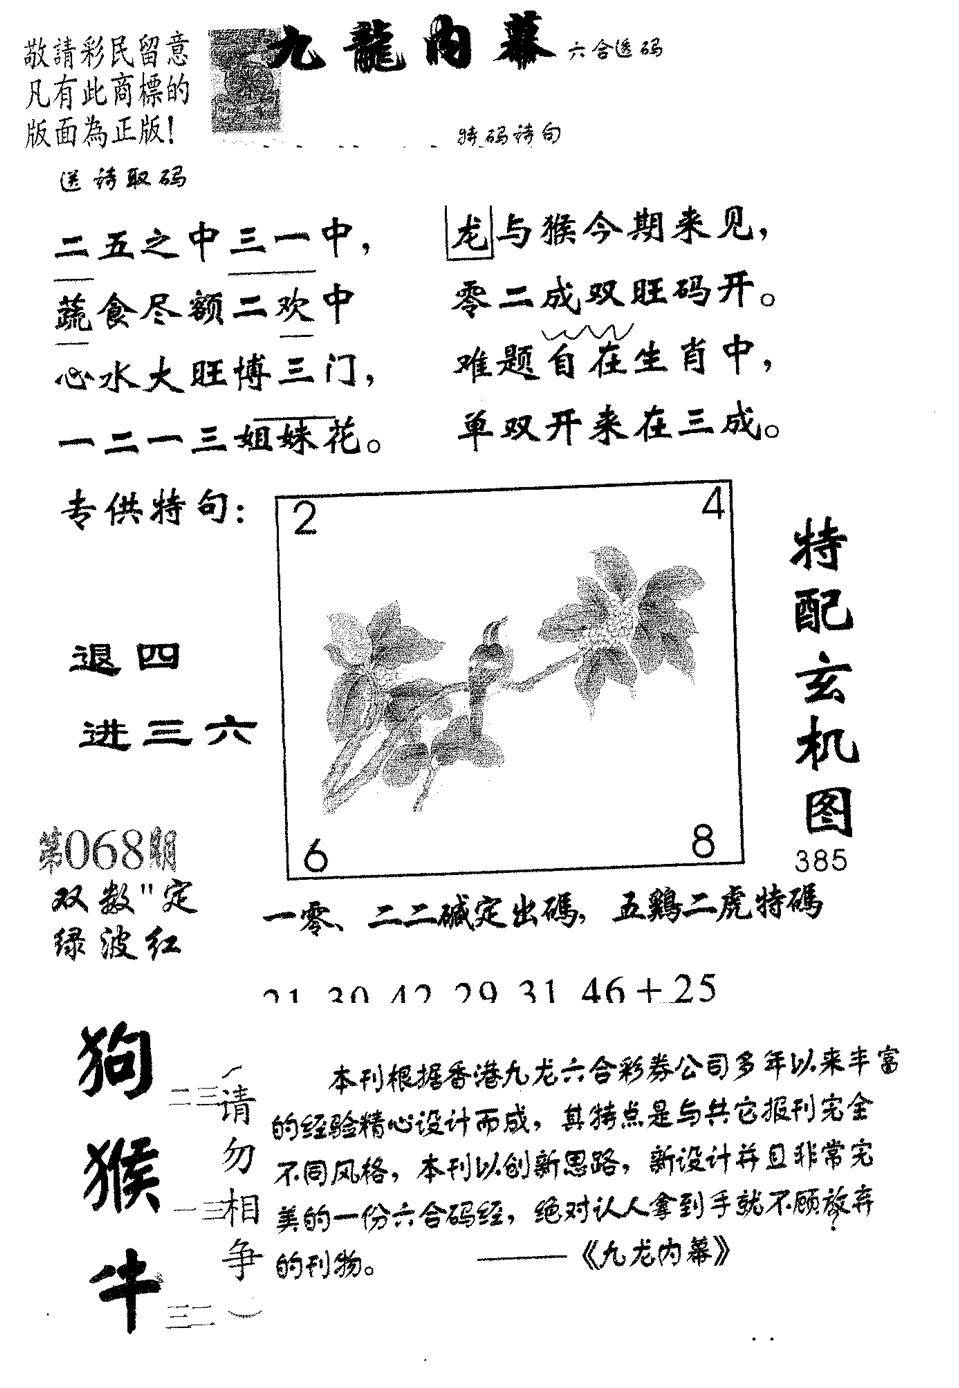 敬請彩民留意
凡有此商標的
版面為正版!
九龍内幕 六合透码
特码诗句
送诗取码
二五之中三一中，
蔬食尽额二欢中
心水大旺博三门，
一二一三姐妹花。
龙与猴今期来见，
零二成双旺码开。
难题自在生肖中，
单双开来在三成。
专供特句：
退四
进三六
2
4
6
8
特配玄机图
385
第068期
双数"定
绿波红
一零、二二碱定出碼，五鷄二虎特碼
21 30 42 29 31 46+25
狗 二三
猴 一三
牛 三二
（请勿相争）
本刊根据香港九龙六合彩券公司多年以来丰富
的经验精心设计而成，其特点是与共它报刊完全
不同风格，本刊以创新思路，新设计并且非常完
美的一份六合码经，绝对认人拿到手就不顾放弃
的刊物。 ——《九龙内幕》